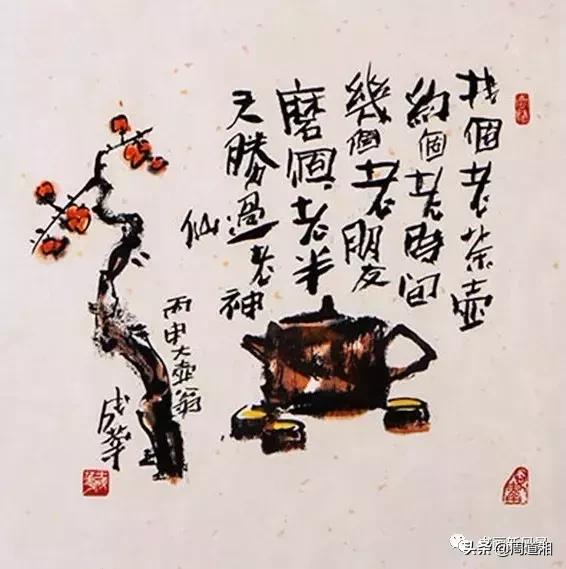 找個老茶壺
約個老時間
幾個老朋友
磨個老半
天勝過老神
仙
丙申大壺翁
成華
头条@周道湘